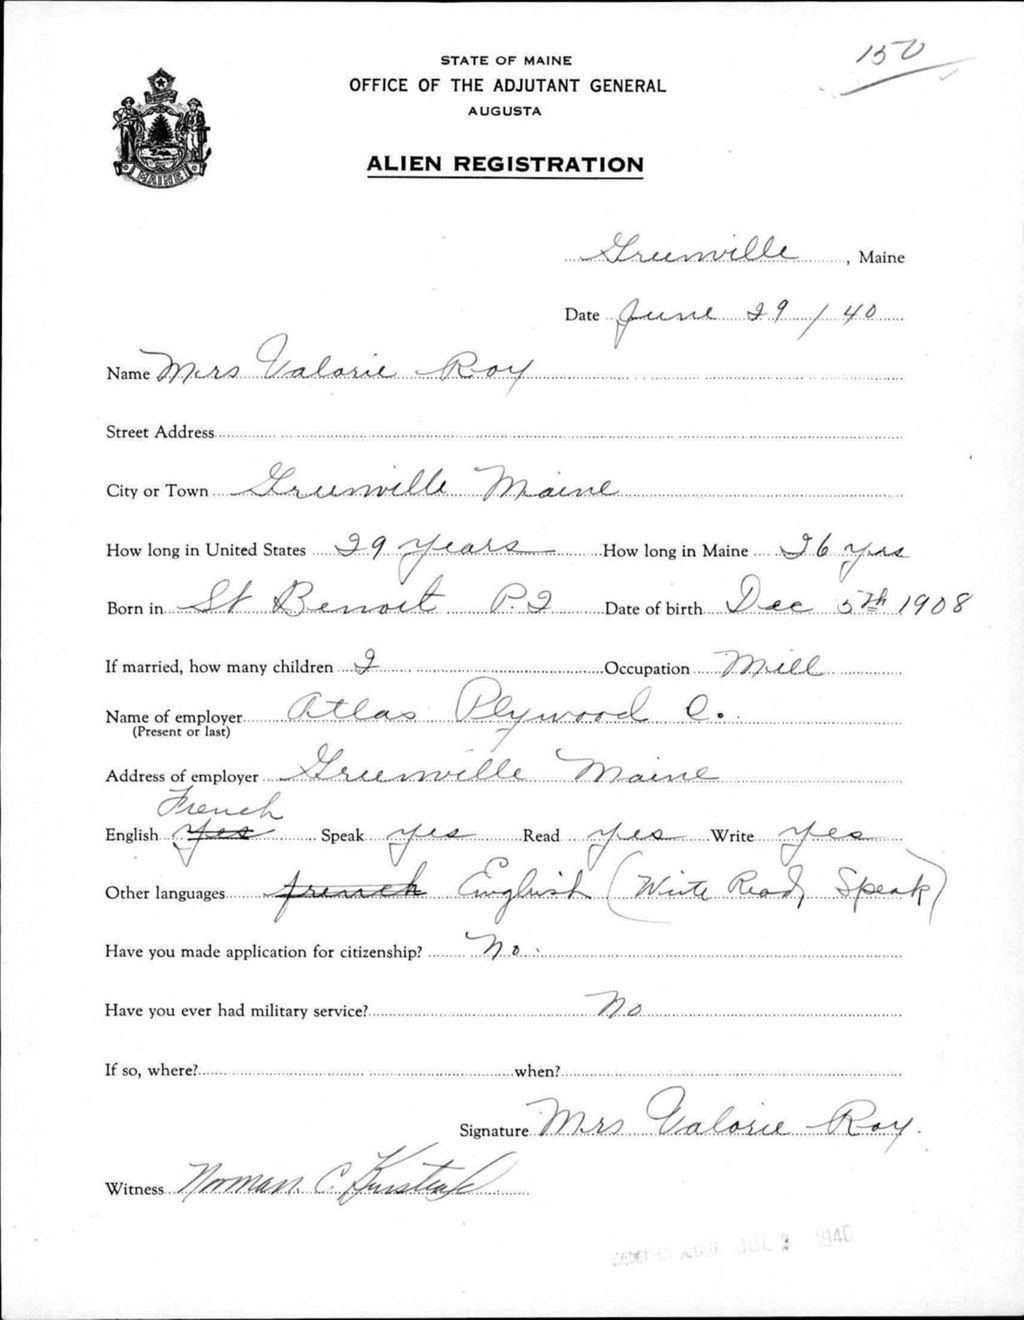 150
STATE OF MAINE
OFFICE OF THE ADJUTANT GENERAL
AUGUSTA
MAINE
ALIEN REGISTRATION
Greenville, Maine
Date June 29/40
Name Mrs Valorie Roy
Street Address
City or Town Greenville Maine
How long in United States 29 years How long in Maine 26 yrs
Born in St Benoit P.Q Date of birth Dec 5th 1908
If married, how many children 2 Occupation Mill
Name of employer Atlas Plywood C.
(Present or last)
Address of employer Greenville Maine
French
English yes Speak yes Read yes Write yes
Other languages french English (Write Read, Speak)
Have you made application for citizenship? No.
Have you ever had military service? No
If so, where? when?
Signature Mrs Valorie Roy.
Witness Norman C.
A.G.O. JUL 2 1940